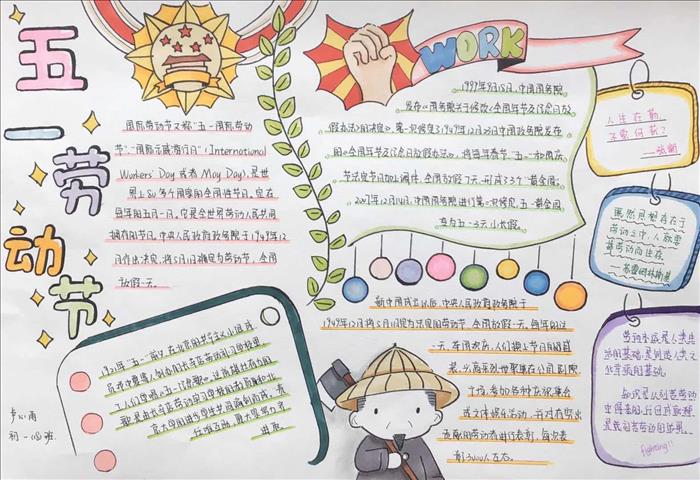 五
一
劳
动
节
WORK
国际劳动节又称"五一国际劳动
节"、"国际示威游行日"(International
Workers' Day 或者 May Day),是世
界上80多个国家的全国性节日。定在
每年的五月一日。它是全世界劳动人民共同
拥有的节日。中央人民政府政务院于1949年12
月作出决定,将5月1日确定为劳动节,全国
放假一天。
1999年9月15日,中国国务院
发布《国务院关于修改〈全国年节及纪念日放
假办法〉的决定》,第一次修定1949年12月23日中国政务院发布
的《全国年节及纪念日放假办法》,将每年春节、"五一"和国庆
节法定节日加上调休,全国放假7天,形成3个"黄金周"。
2007年12月14日,中国国务院进行第二次修定,五一黄金周
变为五一3天小长假。
人生在勤
不索何获?
——张衡
既然思想存在于
劳动之中,人就要
靠劳动而生存
——苏霍姆林斯基
新中国成立以后,中央人民政府政务院于
1949年12月将5月1日定为法定的劳动节,全国放假一天。每年的这
一天,举国欢庆,人们换上节日的盛
装,兴高采烈地聚集在公园、剧院、
广场,参加各种庆祝集会
或文体娱乐活动,并对有突出
贡献的劳动者进行表彰,每次表
彰3000人左右。
1921年"五一"前夕,在北京的共产主义小组成
员邓中夏等人创办的长辛店劳动补习学校里,
工人们学唱《五一纪念歌》。这首雄壮有力的
歌是由长辛店劳动补习学校的教员和北
京大学的进步学生共同编制的
卢心雨
初一(8)班
劳动永远是人类生
活的基础,是创造人类文
化幸福的基础。
知识是从刻苦劳动
中得来的,任何成就都
是刻苦劳动的结果。
fighting!!